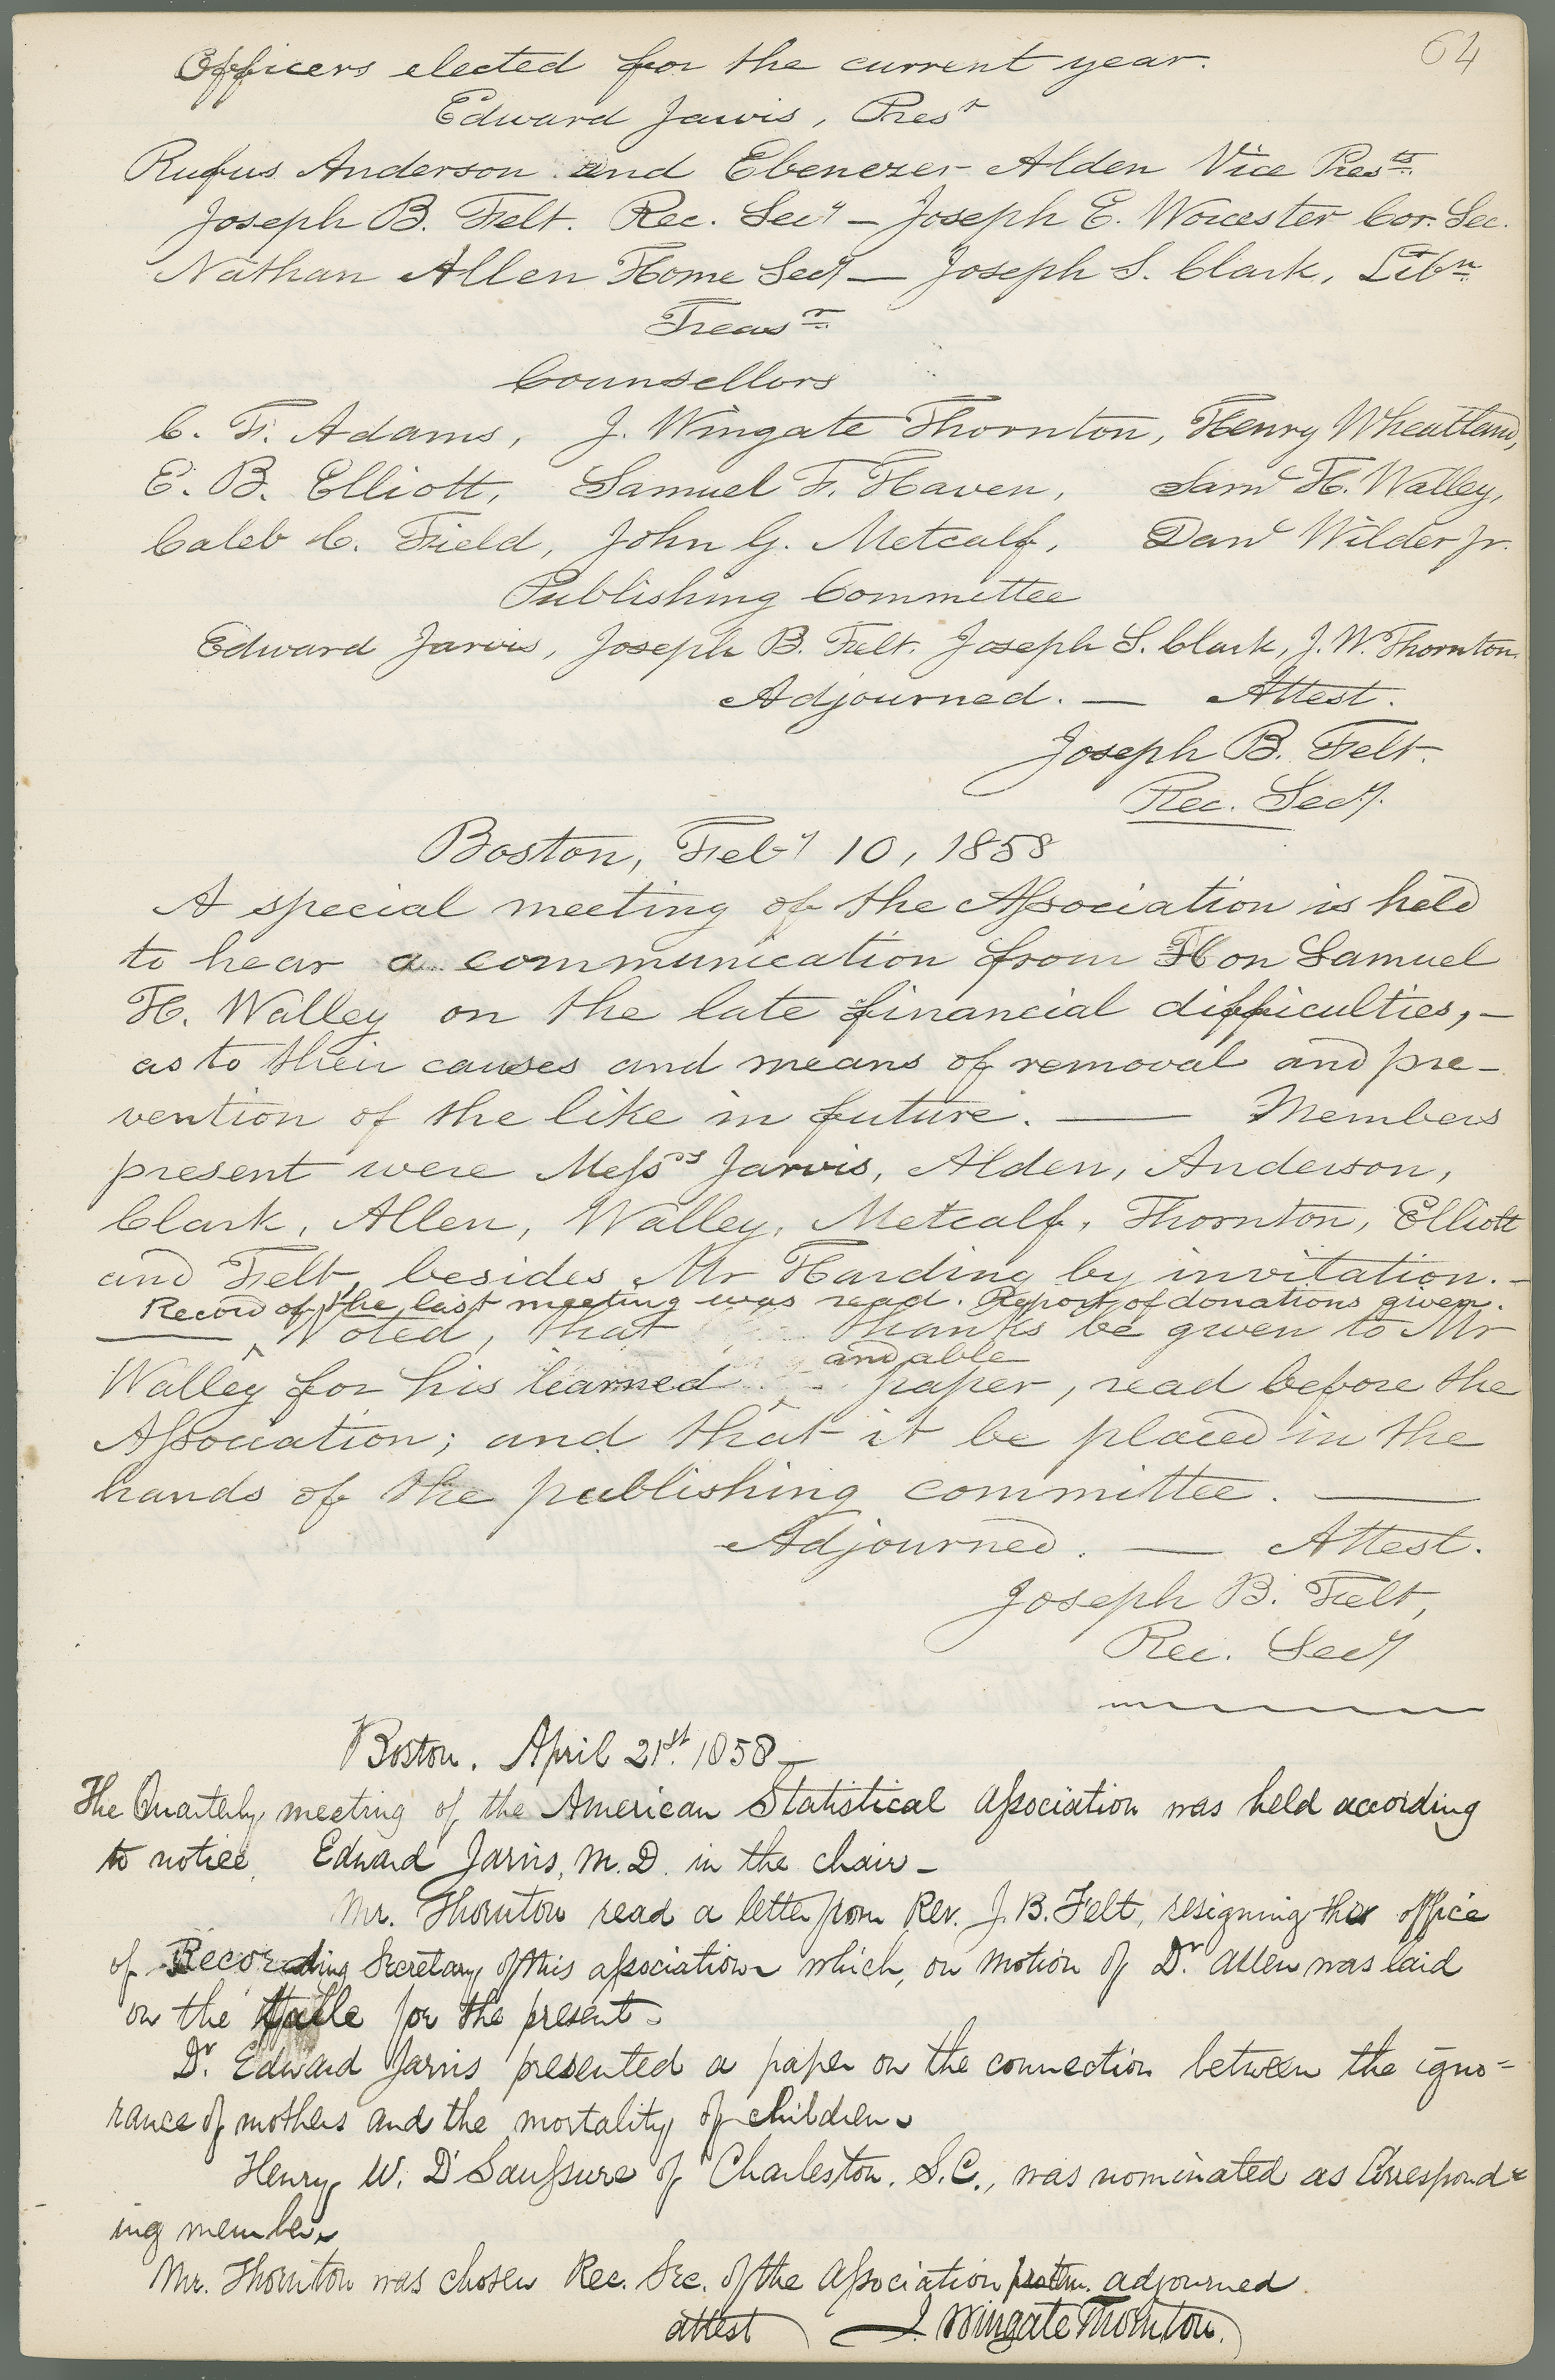 64
Officers elected for the current year.
Edward Jarvis, Presᵗ
Rufus Anderson and Ebenezer Alden Vice Presᵗˢ.
Joseph B. Felt. Rec. Secʸ — Joseph E. Worcester Cor. Sec.
Nathan Allen Home Secʸ — Joseph S. Clark, Libⁿ
Treasʳ
Counsellors
C. F. Adams, J. Wingate Thornton, Henry Wheatland,
E. B. Elliott, Samuel F. Haven, Samˡ H. Walley,
Caleb C. Field, John G. Metcalf, Danˡ Wilder Jr.
Publishing Committee
Edward Jarvis, Joseph B. Felt. Joseph S. Clark, J. W. Thornton.
Adjourned. — Attest.
Joseph B. Felt.
Rec. Secʸ.
Boston, Febʸ 10, 1858
A special meeting of the Aſsociation is held
to hear a communication from Hon Samuel
H. Walley on the late financial difficulties, —
as to their causes and means of removal and pre-
vention of the like in future. — Members
present were Meſsʳˢ Jarvis, Alden, Anderson,
Clark, Allen, Walley, Metcalf, Thornton, Elliott
and Felt, besides Mr Harding by invitation. —
Record of the last meeting was read. Report of donations given.
— ‸ Voted, that thanks be given to Mr
and able
Walley for his learned ‸ paper, read before the
Aſsociation; and that it be placed in the
hands of the publishing committee. —
Adjourned. — Attest.
Joseph B. Felt,
Rec. Secʸ
Boston. April 21ˢᵗ. 1858 —
The Quarterly meeting of the American Statistical Aſsociation was held according
to notice. Edward Jarvis, M.D. in the chair —
Mr. Thornton read a letter from Rev. J. B. Felt, resigning the office
of Recording Secretary of this aſsociation which, on motion of Dʳ. Allen was laid
on the table for the present.
Dʳ. Edward Jarvis presented a paper on the connection between the igno=
rance of mothers and the mortality of children.
Henry W. D'Sauſsure of Charleston. S.C., was nominated as Correspond=
ing member.
Mr. Thornton was chosen Rec. Sec. of the Aſsociation pro tem. adjourned.
attest J. Wingate Thornton.